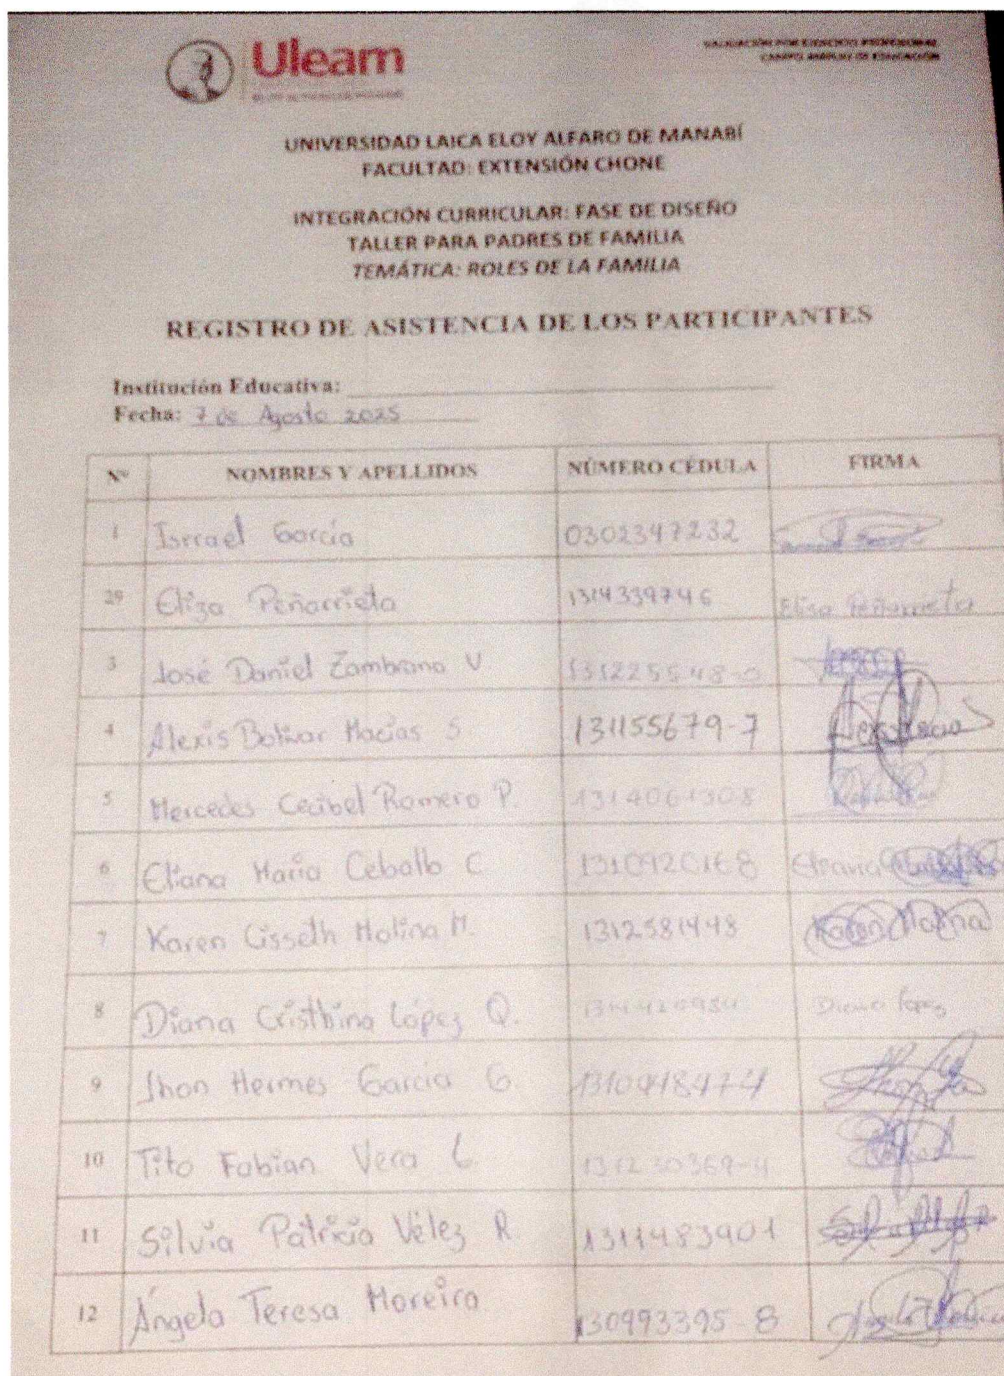 Uleam
VALIDACIÓN POR EJERCICIO PROFESIONAL
CAMPO AMPLIO DE EDUCACIÓN
UNIVERSIDAD LAICA ELOY ALFARO DE MANABÍ
FACULTAD: EXTENSIÓN CHONE
INTEGRACIÓN CURRICULAR: FASE DE DISEÑO
TALLER PARA PADRES DE FAMILIA
TEMÁTICA: ROLES DE LA FAMILIA
REGISTRO DE ASISTENCIA DE LOS PARTICIPANTES
Institución Educativa:
Fecha: 7 de Agosto 2025
Nº NOMBRES Y APELLIDOS NÚMERO CÉDULA FIRMA
1 Isrrael García 0302347232
29 Eliza Peñarrieta 1314339746 Elisa Peñarrieta
3 José Daniel Zambrano V
4 Alexis Bolívar Macías S 131155679-7
5 Mercedes Cecibel Romero P. 1314061308
6 Eliana María Ceballo C 1310920168 Eliana
7 Karen Lisseth Molina M. 1312581448 Karen Molina
8 Diana Cristhina López Q. Diana López
9 Jhon Hermes García G. 1310918474
10 Tito Fabian Vera L
11 Silvia Patricia Vélez R 1311483901
12 Ángela Teresa Moreira 130993395-8